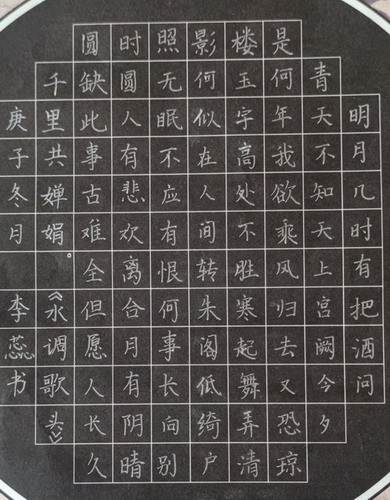 明月几时有把酒问
青天不知天上宫阙今夕
是何年我欲乘风归去又恐琼
楼玉字高处不胜寒起舞弄清
影何似在人间转朱阁低绮户
照无眠不应有恨何事长向别
时圆人有悲欢离合月有阴晴
圆缺此事古难全但愿人长久
千里共婵娟。《水调歌头》
庚子冬月 李蕊书